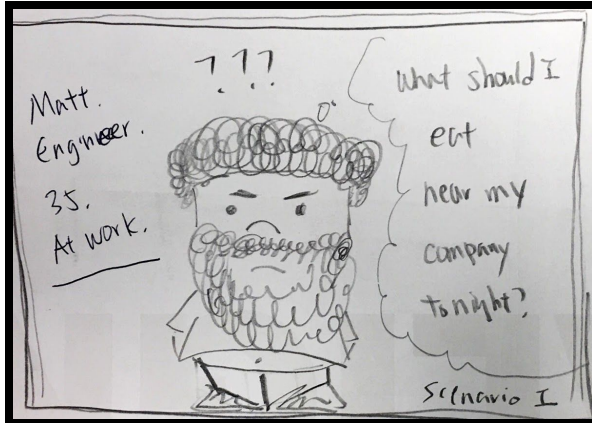 ???
Matt.
Engineer.
35.
At work.
What should I
eat
near my
company
tonight?
Scenario I